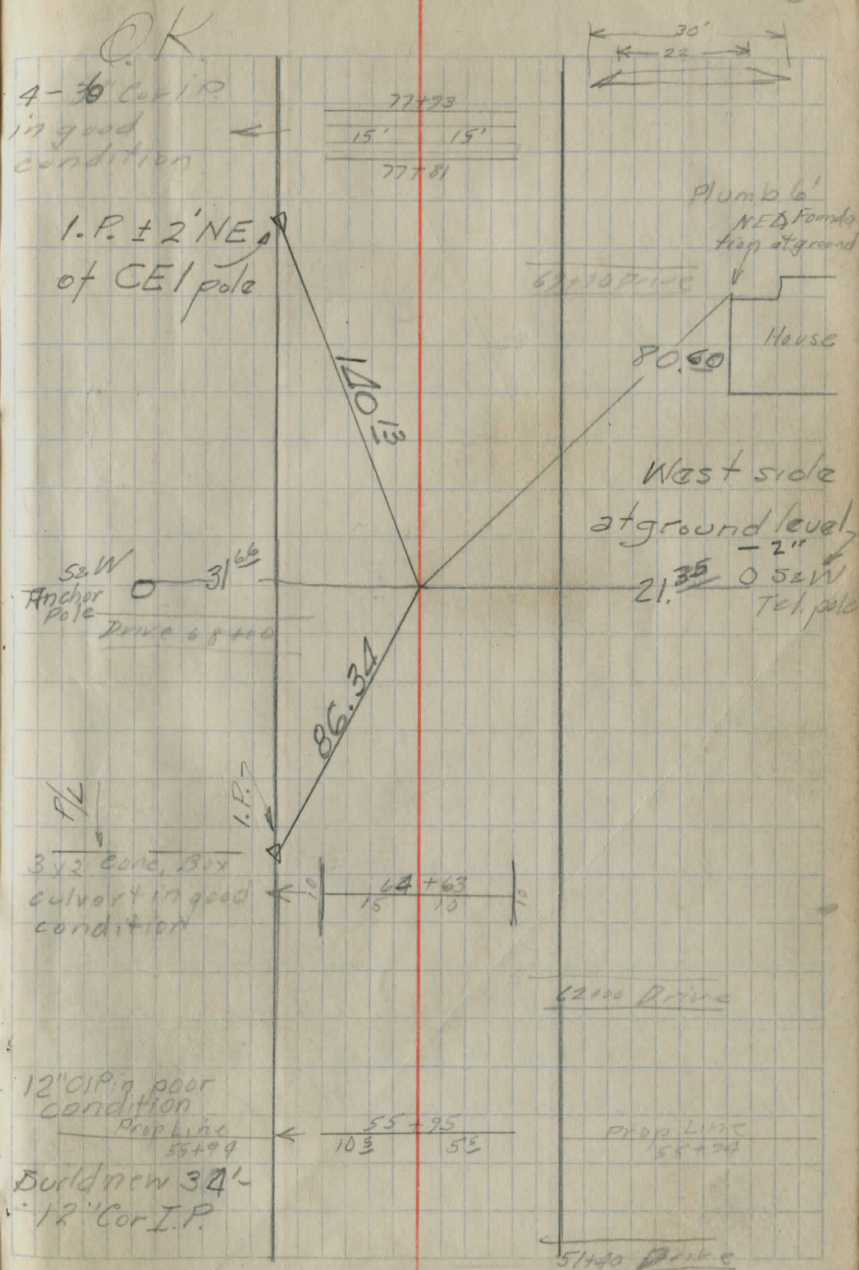 O.K.
30'
22
4-36" Cor I.P.
in good
condition
77+93
15' 15'
77+81
Plumb 6'
NE Founda
tion at ground
I.P. ± 2' NE
of CEI pole
Drive
House
140.13
80.60
West side
at ground level
- 2"
S&W
Anchor
Pole
31.66
21.35
S&W
Tel. pole
Drive 68+00
86.34
P/L
I.P.
3x2 Conc. Box
culvert in good
condition
64+63
10 15 10 10
62+00 Drive
12" CIP in poor
condition
Prop Line
55+94
55+95
Prop Line
55+94
Build new 34'-
12" Cor I.P.
51+40 Drive